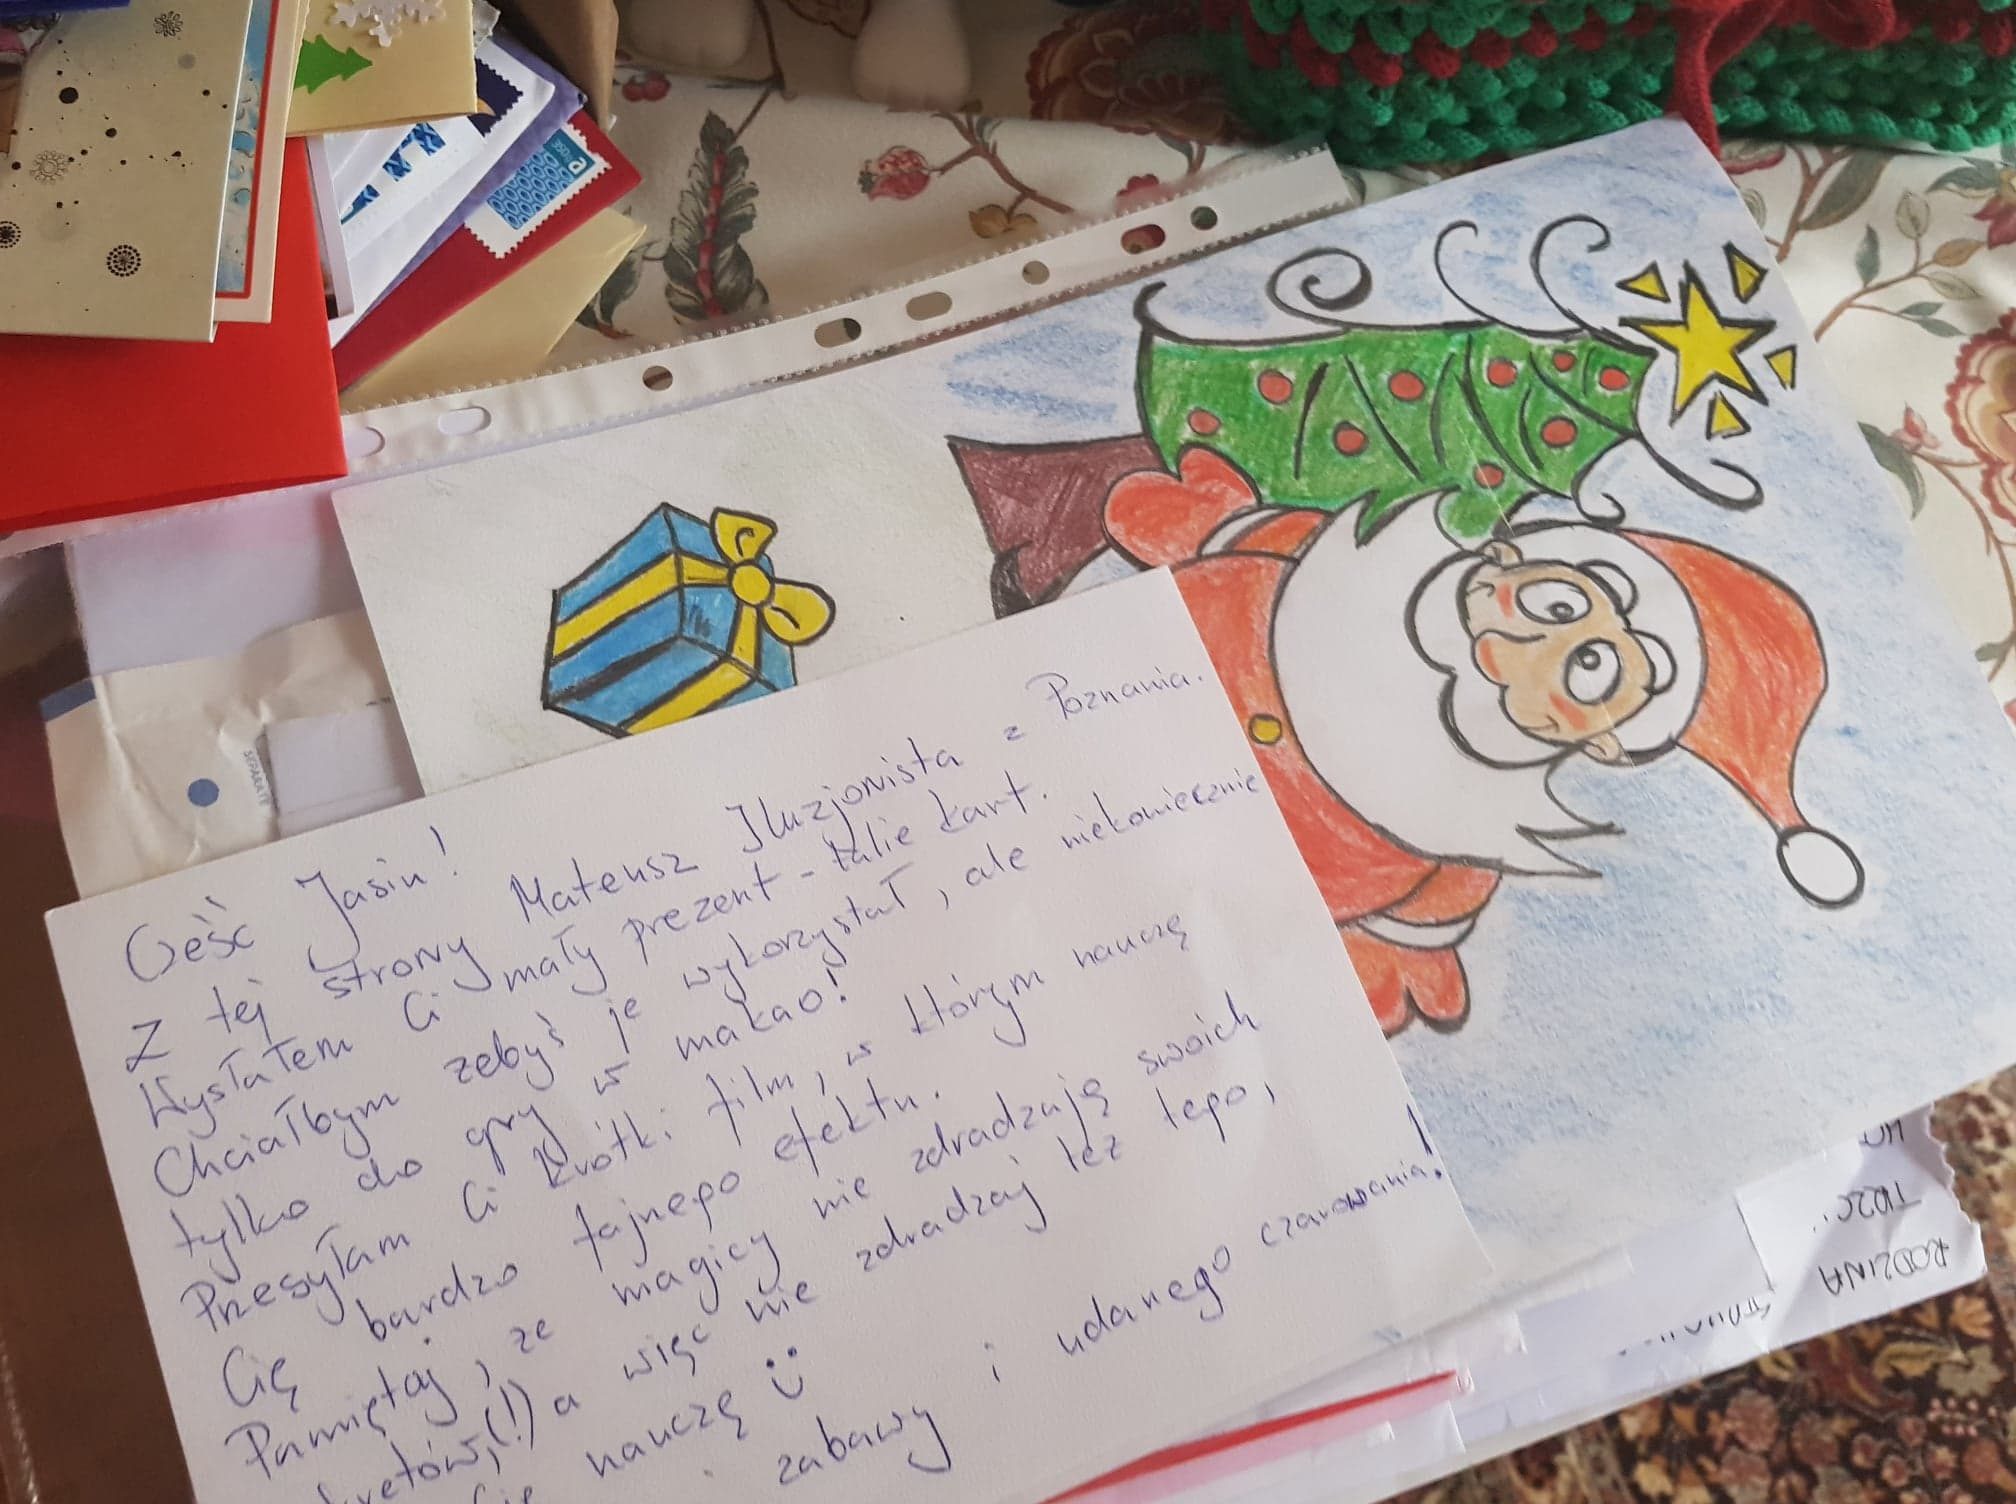 Cześć Jasiu!
Z tej strony Mateusz Iluzjonista z Poznania.
Wysłałem Ci mały prezent - talie kart.
Chciałbym żebyś je wykorzystał, ale niekoniecznie
tylko do gry w makao!
Przesyłam Ci krótki film, w którym nauczę
Cię bardzo fajnego efektu.
Pamiętaj, że magicy nie zdradzają swoich
kretów, (!) a więc nie zdradzaj też tego,
Cię nauczę
zabawy i udanego czarowania!
SEPARATE
RODZINA